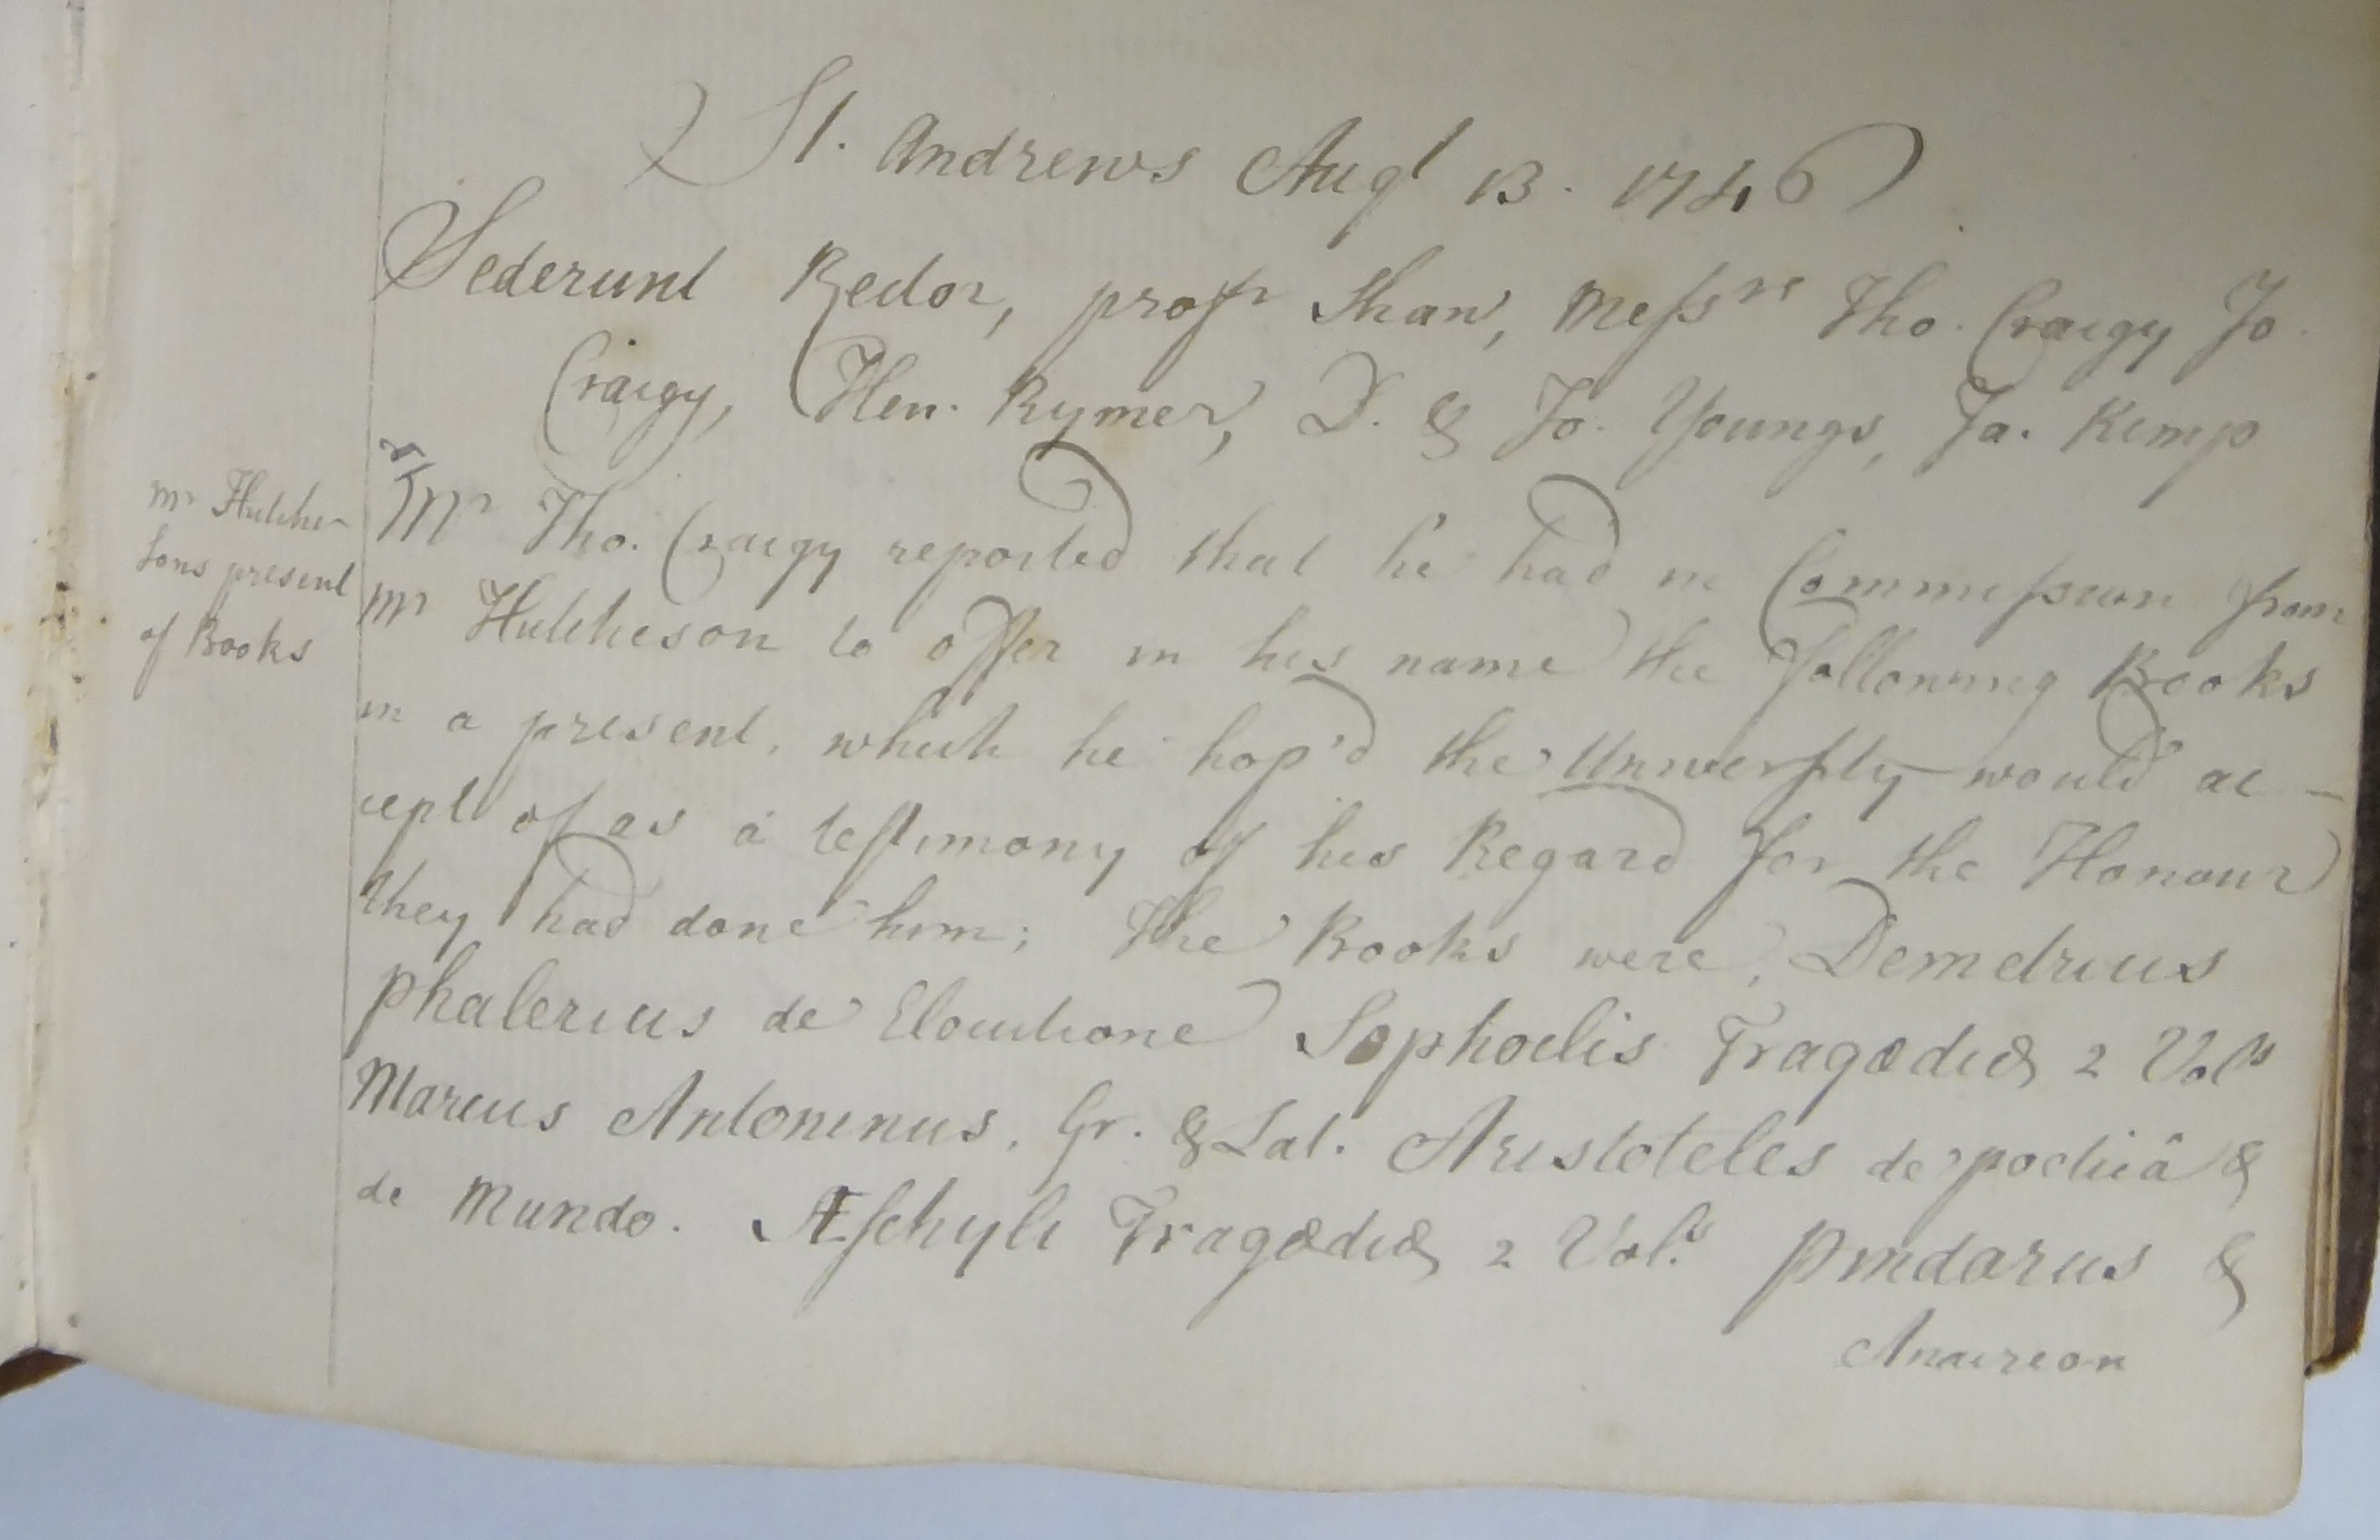 St. Andrews Augt 13. 1746
Sederunt Rector, profr Shaw, Messrs Tho. Craigy Jo.
Craigy, Hen. Rymer, D. & Jo. Youngs, Ja. Kemp
Mr Hutche-
sons present
of Books
Mr Tho. Craigy reported that he had in Commission from
Mr Hutcheson to offer in his name the following Books
in a present, which he hop'd the University would ac-
cept of as a testimony of his Regard for the Honour
they had done him; The Books were, Demetrius
Phalerius de Elocutione Sophoclis Tragœdiæ 2 Vols
Marcus Antoninus, Gr. & Lat. Aristoteles de poeticâ &
de Mundo. Æschyli Tragœdiæ 2 Vol.s Pindarus &
Anacreon